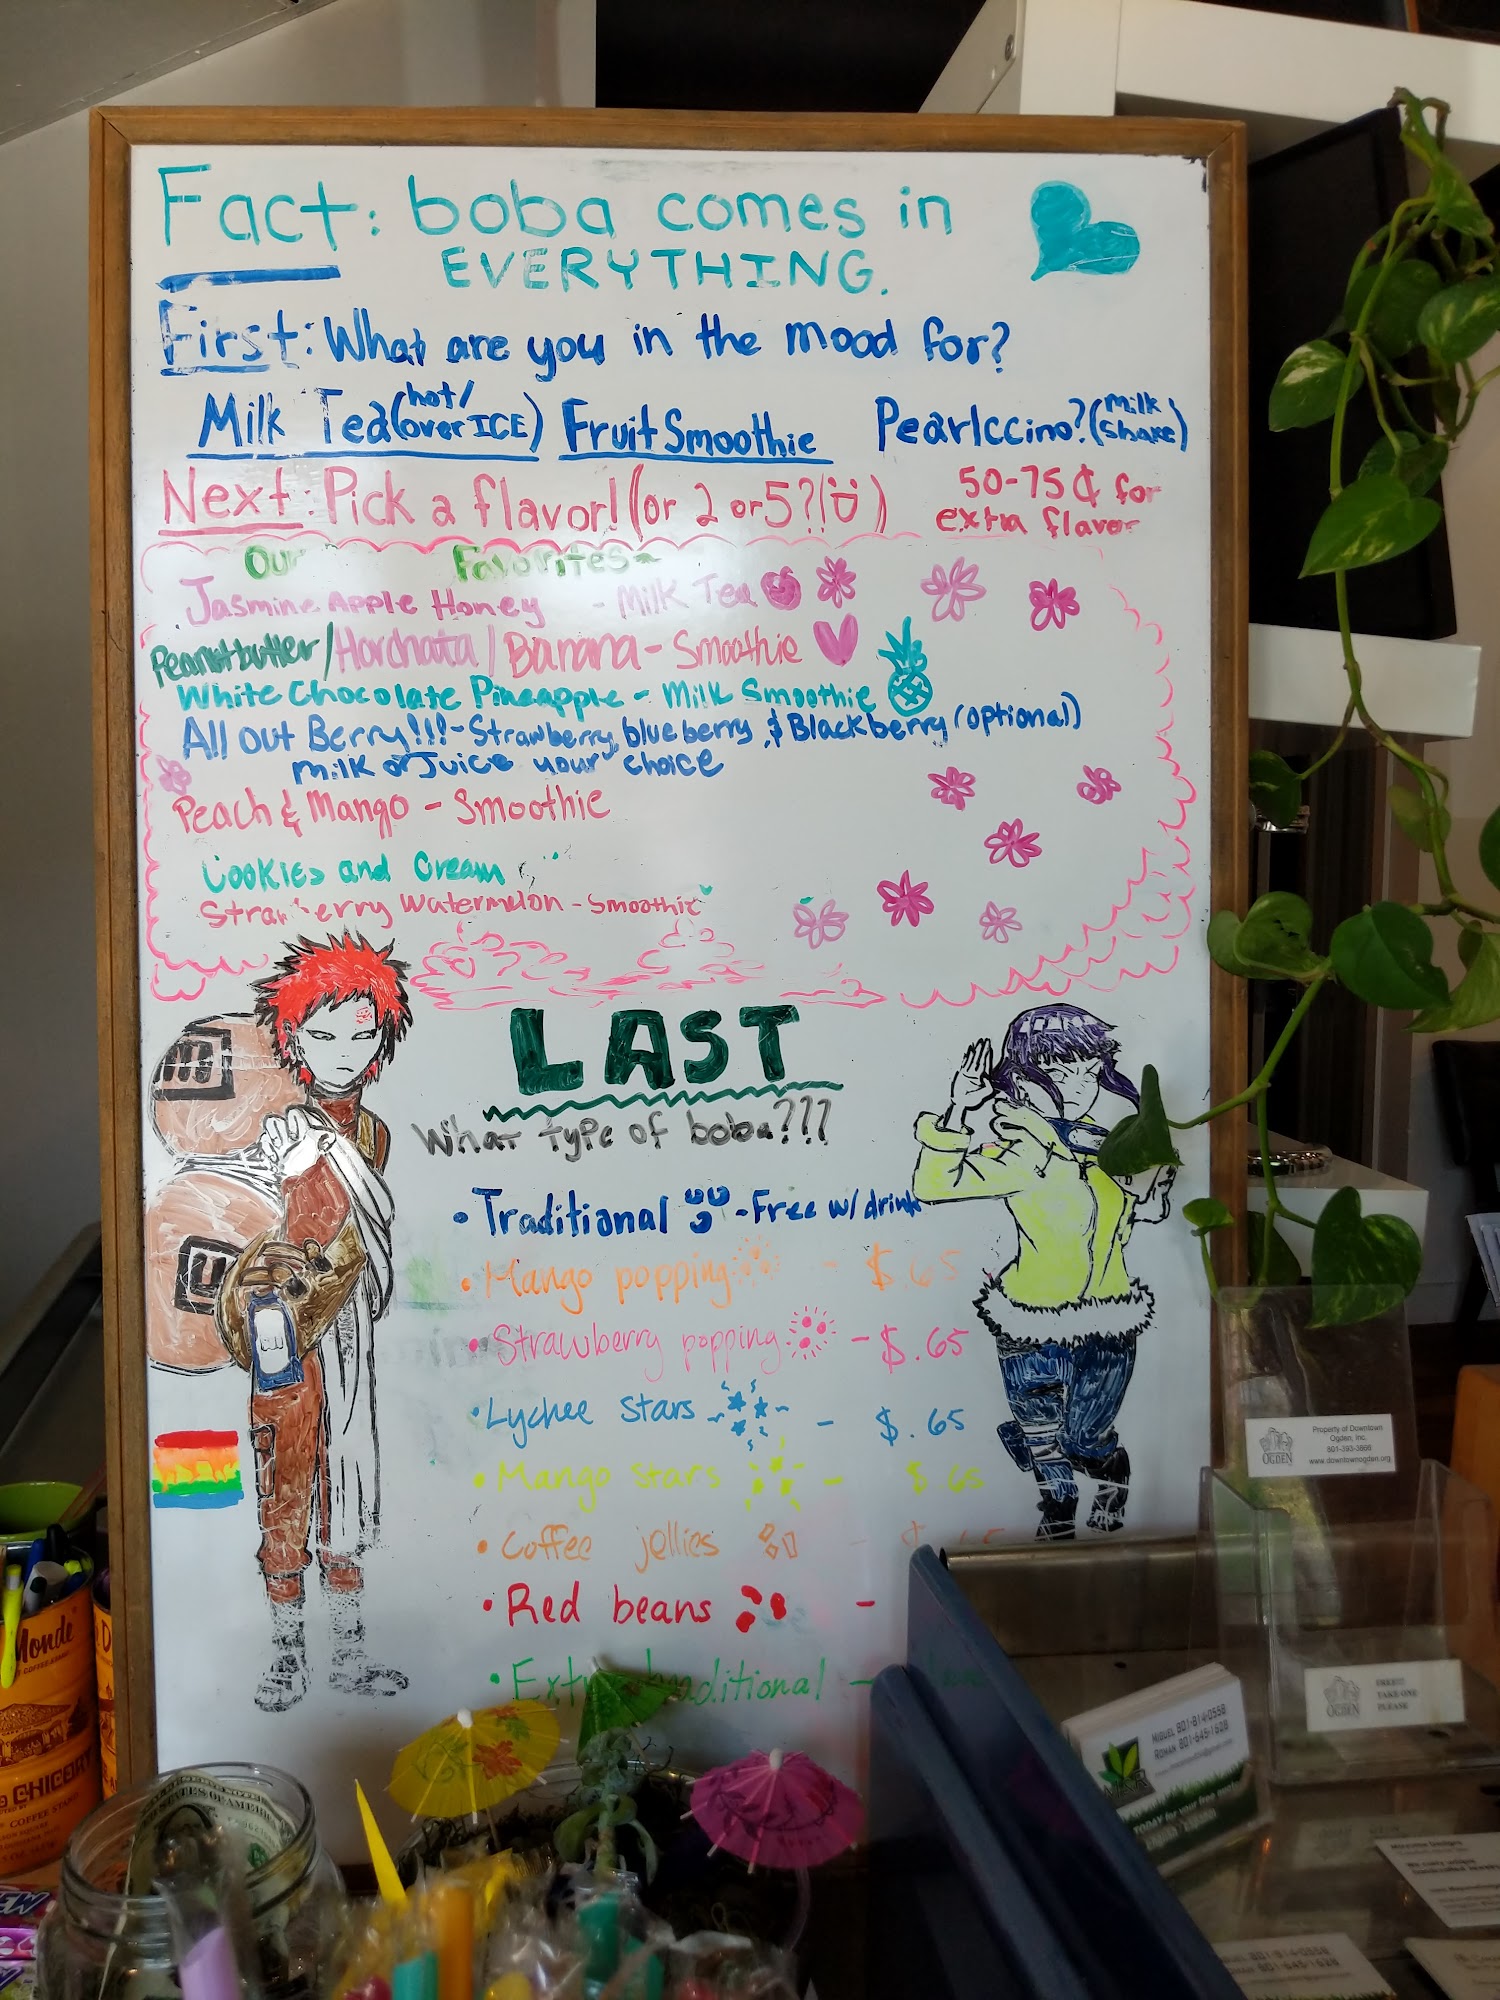 Fact: boba comes in
EVERYTHING.
First: What are you in the mood for?
Milk Tea (hot/ over ICE) Fruit Smoothie Pearlccino? (milk shake)
Next: Pick a flavor! (or 2 or 5?!
50-75¢ for
extra flavor
Our Favorites~
Jasmine Apple Honey - Milk Tea
Peanutbutter/Horchata/Banana - Smoothie
White Chocolate Pineapple - Milk Smoothie
All out Berry!!! - Strawberry, blueberry & Blackberry (optional)
milk or Juice your choice
Peach & Mango - Smoothie
Cookies and Cream
Strawberry Watermelon - Smoothie
LAST
What type of boba???
• Traditional - Free w/ drink
• Mango popping - $.65
• Strawberry popping - $.65
• Lychee stars - $.65
• Mango stars - $.65
• Coffee jellies - $.65
• Red beans -
• Extra traditional -
Property of Downtown
Ogden, Inc.
801-393-3866
www.downtownogden.org
OGDEN
TAKE ONE
PLEASE
OGDEN
Miguel 801-814-0558
Roman 801-645-1628
TODAY for your free
Monde
CHICORY
COFFEE STAND